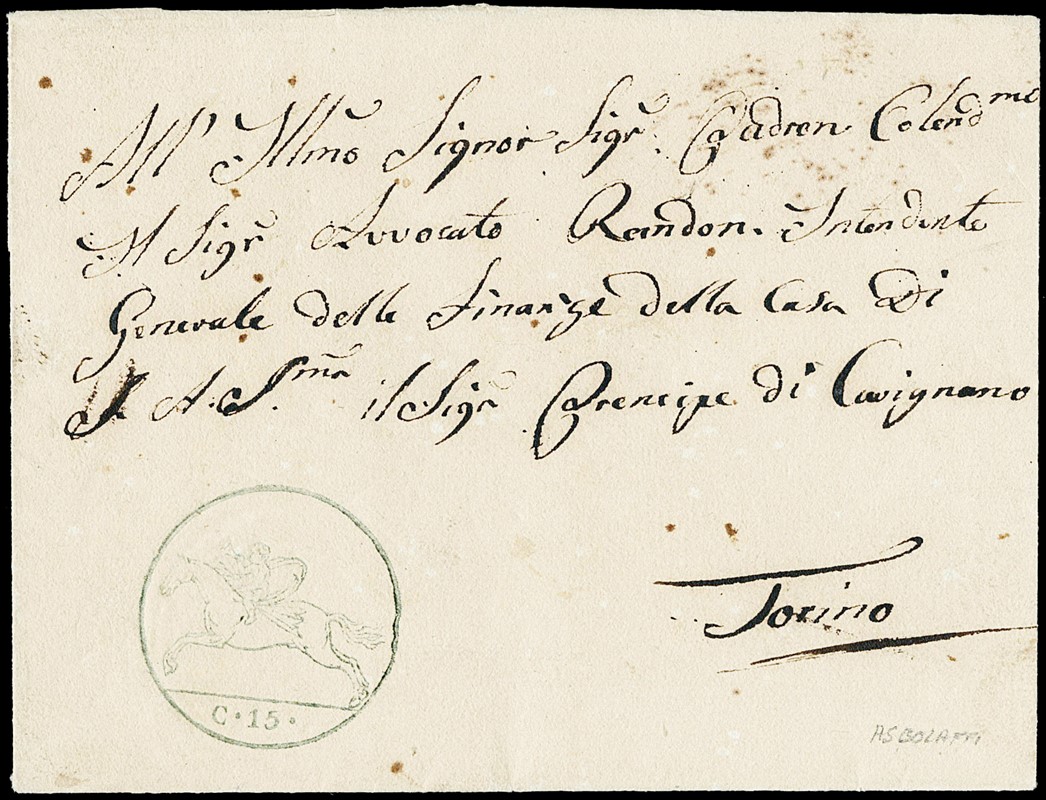 All' Illmo Signor Sigr Padron Colendmo
Il Sigr Avvocato Randon Intendente
Generale delle Finanze della Casa Di
S. A. S.ma il Sigr Prencipe di Carignano
Torino
C · 15 ·
ASBOLAFFI